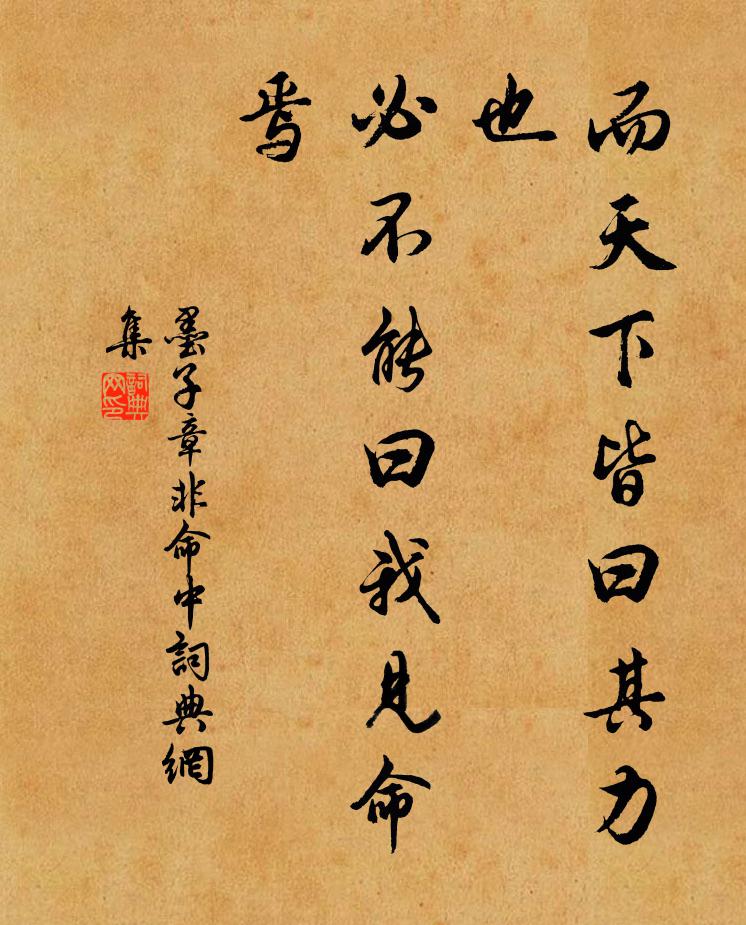 而天下皆曰其力
也
必不能曰我見命
焉
墨子章非命中詞典網
集
詞典
网印